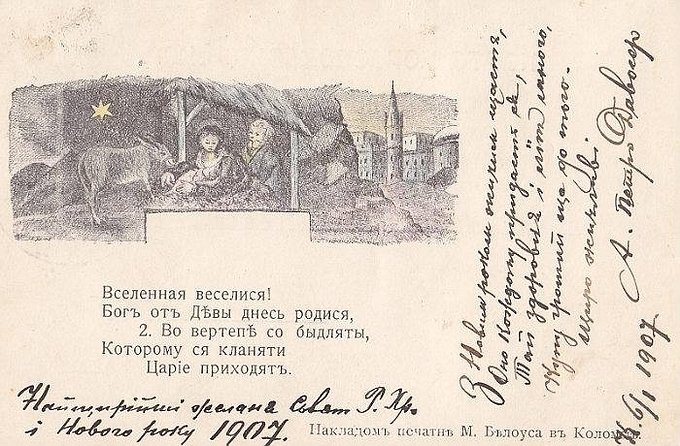 Вселенная веселися!
Богъ отъ Дѣвы днесь родися,
2. Во вертепѣ со быдляты,
Которому ся кланяти
Царіе приходятъ.
Найщирійші желаня Свят Р. Хр.
і Нового року 1907.
Накладомъ печатнѣ М. Бѣлоуса въ Коломыи
З Новим роком зичим щастя,
Оно кождому придасть ся,
Тай здоровля і літ много,
Купу грошей ще до того.
Щиро жичливі
А. Петро
6/I 1907